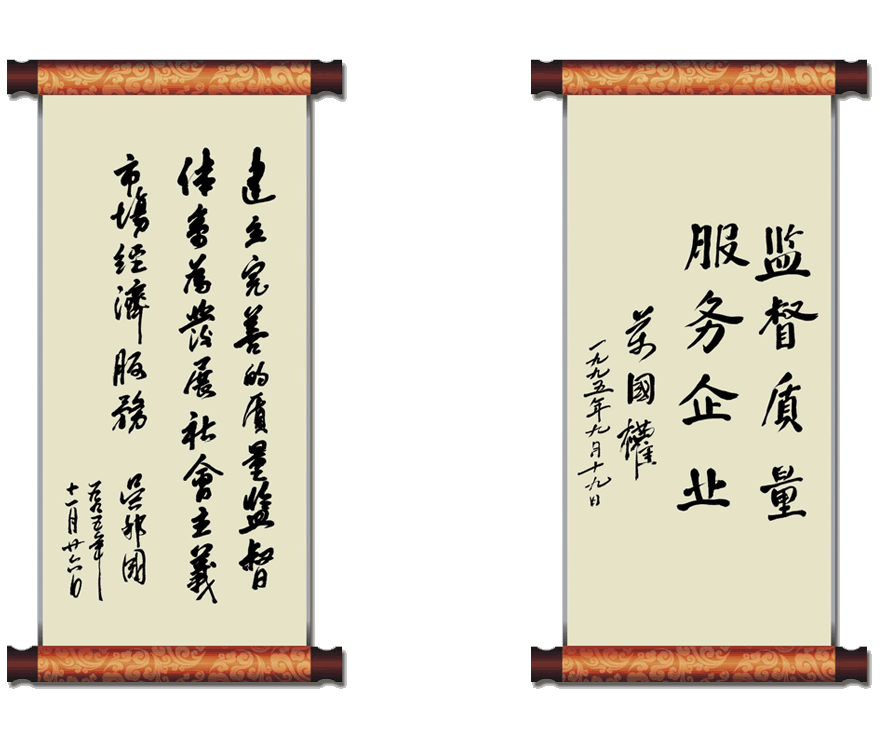 建立完善的质量监督
体系為發展社會主義
市場經濟服務
吴邦國
一九九五年
十一月廿六日
监督质量
服务企业
萬國權
一九九五年九月十九日